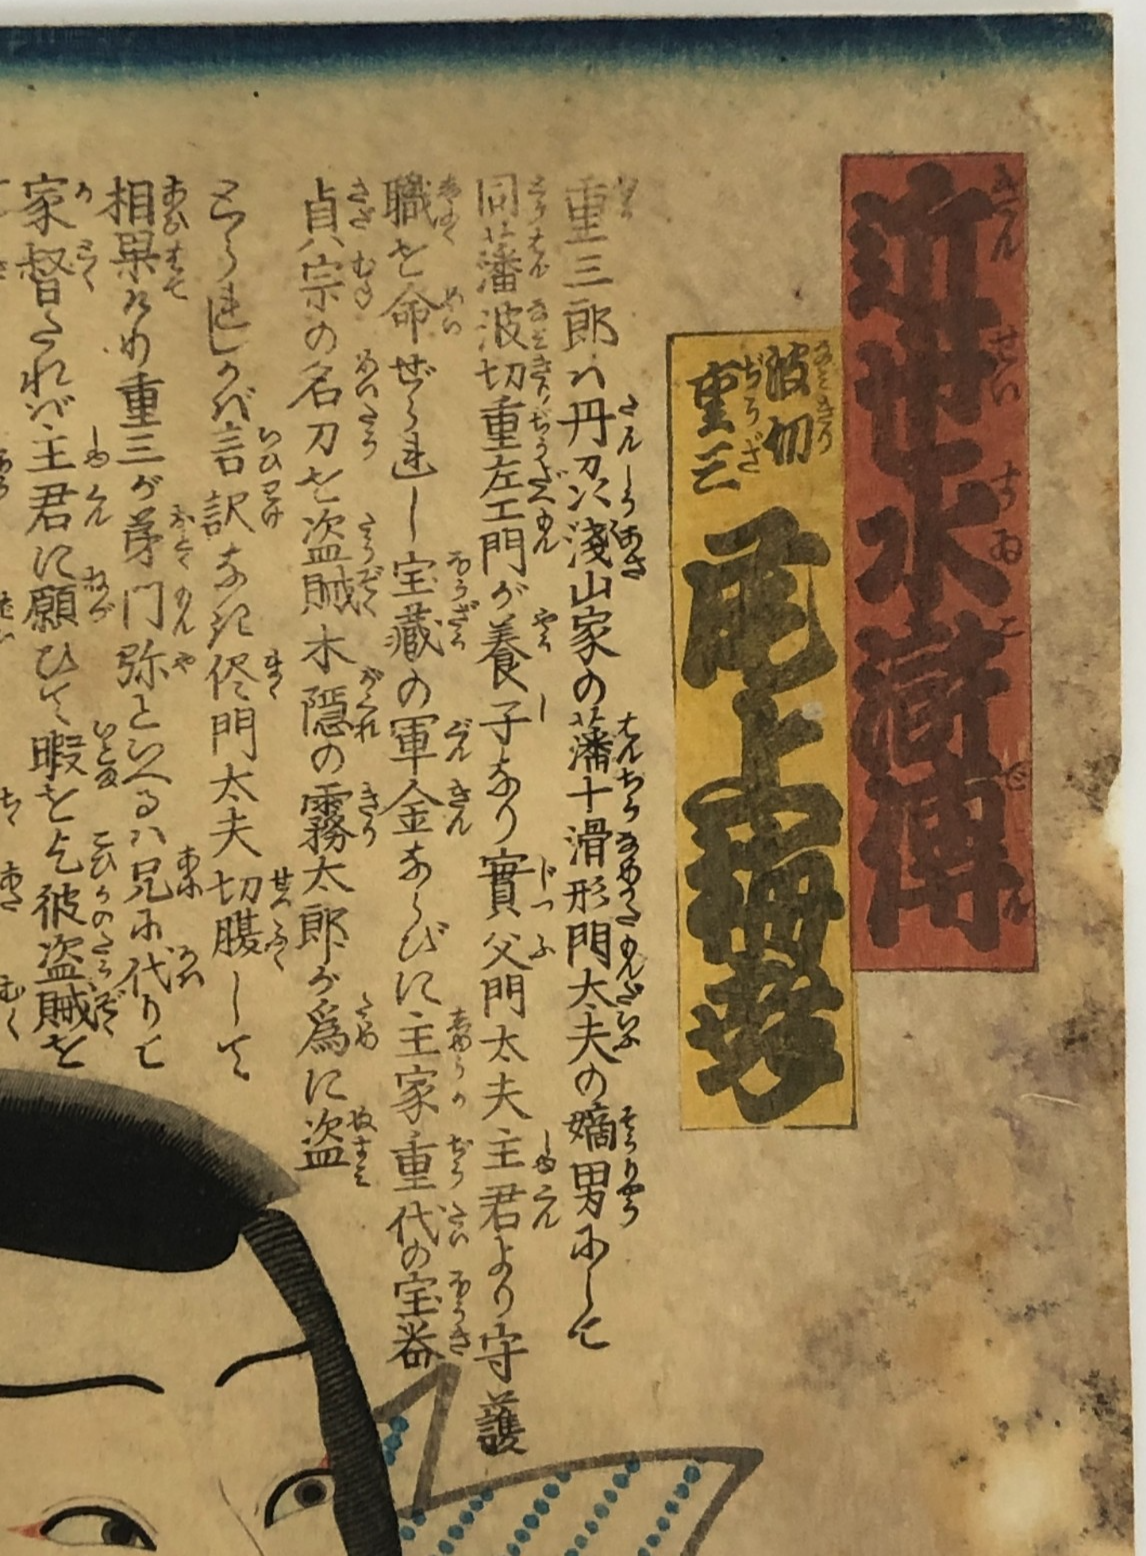 近世水滸傳
きんせいすゐこでん
波切
重三
尾上梅幸
重三郎ハ丹刕淺山家の藩十滑形門太夫の嫡男にして
同藩波切重左エ門が養子なり實父門太夫主君より守護
職を命ぜられし宝蔵の軍金ならびに主家重代の宝器
貞宗の名刀を盗賊木隠の霧太郎が為に盗
とられしかバ言訳なき侭門太夫切腹して
相果ける 重三が弟門弥といへるハ兄に代りて
家督 れバ主君に願ひて暇を乞彼盗賊を